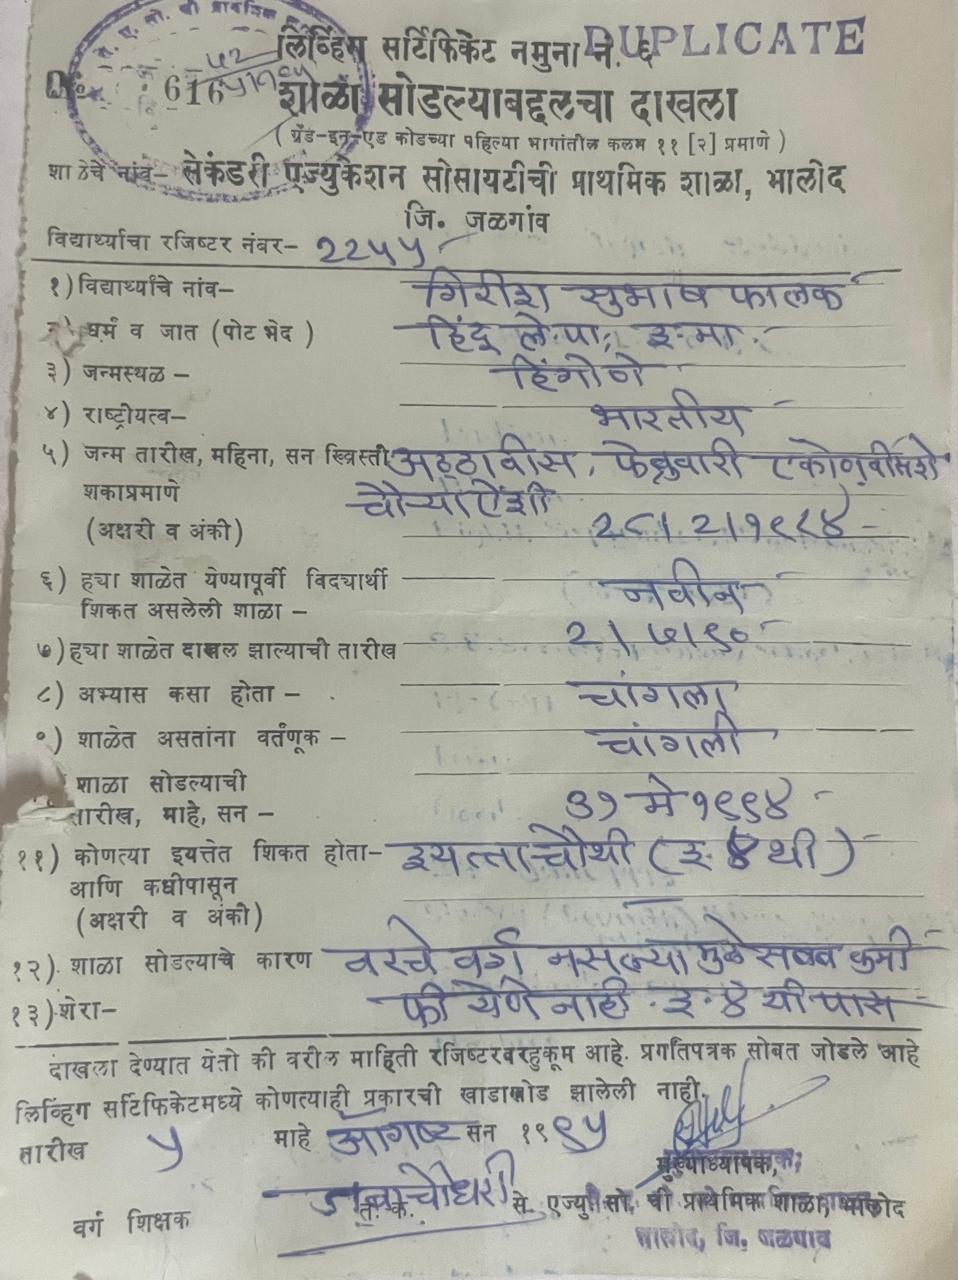 लिव्हिंग सर्टिफिकेट नमुना नं. ६ DUPLICATE
616 शाळा सोडल्याबद्दलचा दाखला
( ग्रँड-इन-एड कोडच्या पहिल्या भागांतील कलम ११ [२] प्रमाणे )
शाळेचे नांव- सेकंडरी एज्युकेशन सोसायटीची प्राथमिक शाळा, भालोद
जि. जळगांव
विद्यार्थ्याचा रजिष्टर नंबर- २२५५
१) विद्यार्थ्याचे नांव- गिरीश सुभाष फालक
धर्म व जात (पोट भेद) हिंदू ले.पा. इ.मा.
३) जन्मस्थळ - हिंगोणे
४) राष्ट्रीयत्व- भारतीय
५) जन्म तारीख, महिना, सन ख्रिस्ती अठ्ठावीस, फेब्रुवारी एकोणवीसशे
शकाप्रमाणे चौऱ्याऐंशी
(अक्षरी व अंकी) २८।२।१९८४
६) ह्या शाळेत येण्यापूर्वी विद्यार्थी नवीन
शिकत असलेली शाळा -
७) ह्या शाळेत दाखल झाल्याची तारीख २।७।९०
८) अभ्यास कसा होता - चांगला
९) शाळेत असतांना वर्तणूक - चांगली
शाळा सोडल्याची
तारीख, माहे, सन - ३१ मे १९९४
११) कोणत्या इयत्तेत शिकत होता- इयत्ता चौथी (इ. ४ थी)
आणि कधीपासून
(अक्षरी व अंकी)
१२) शाळा सोडल्याचे कारण वरचे वर्ग नसल्यामुळे सबब कमी
१३) शेरा- फी येणे नाही. इ. ४ थी पास
दाखला देण्यात येतो की वरील माहिती रजिष्टरबरहुकूम आहे. प्रगतिपत्रक सोबत जोडले आहे
लिव्हिंग सर्टिफिकेटमध्ये कोणत्याही प्रकारची खाडाखोड झालेली नाही.
तारीख ५ माहे ऑगष्ट सन १९९५
मुख्याध्यापक,
वर्ग शिक्षक चौधरी से. एज्यु. सो. ची प्राथमिक शाळा, भालोद
भालोद, जि. जळगाव